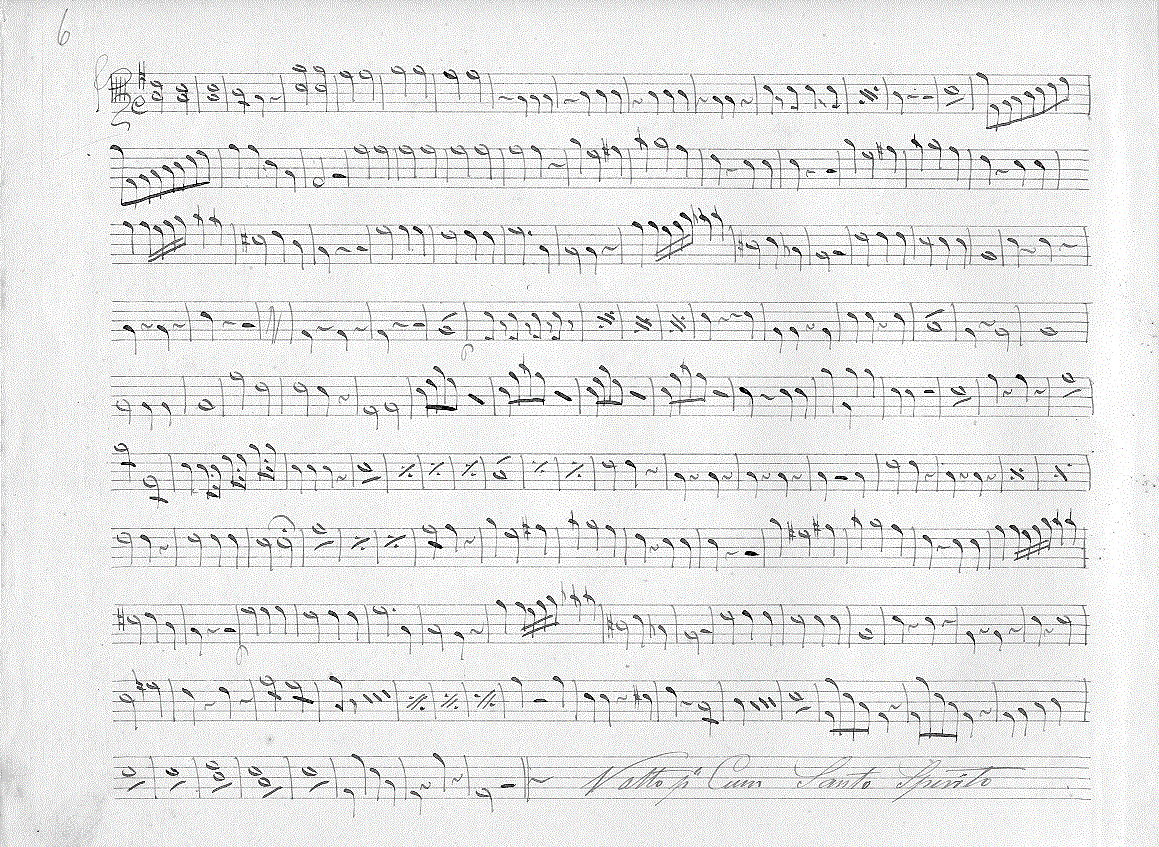 6
p
p
Cum Santo Spirito